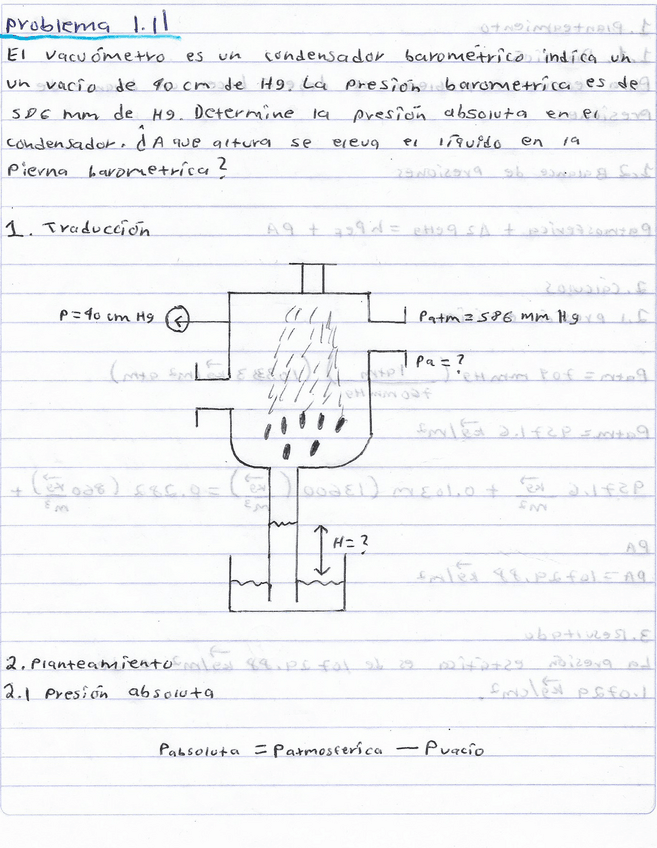 Problema 1.11
El vacuómetro es un condensador barométrico indica un
un vacío de 40 cm de Hg. La presión barometrica es de
586 mm de Hg. Determine la presión absoluta en el
condensador. ¿A que altura se eleva el líquido en la
Pierna barometrica?
1. Traducción
P=40 cm Hg
Patm=586 mm Hg
Pa=?
H=?
2. Planteamiento
2.1 Presión absoluta
Pabsoluta = Patmosferica — Pvacío